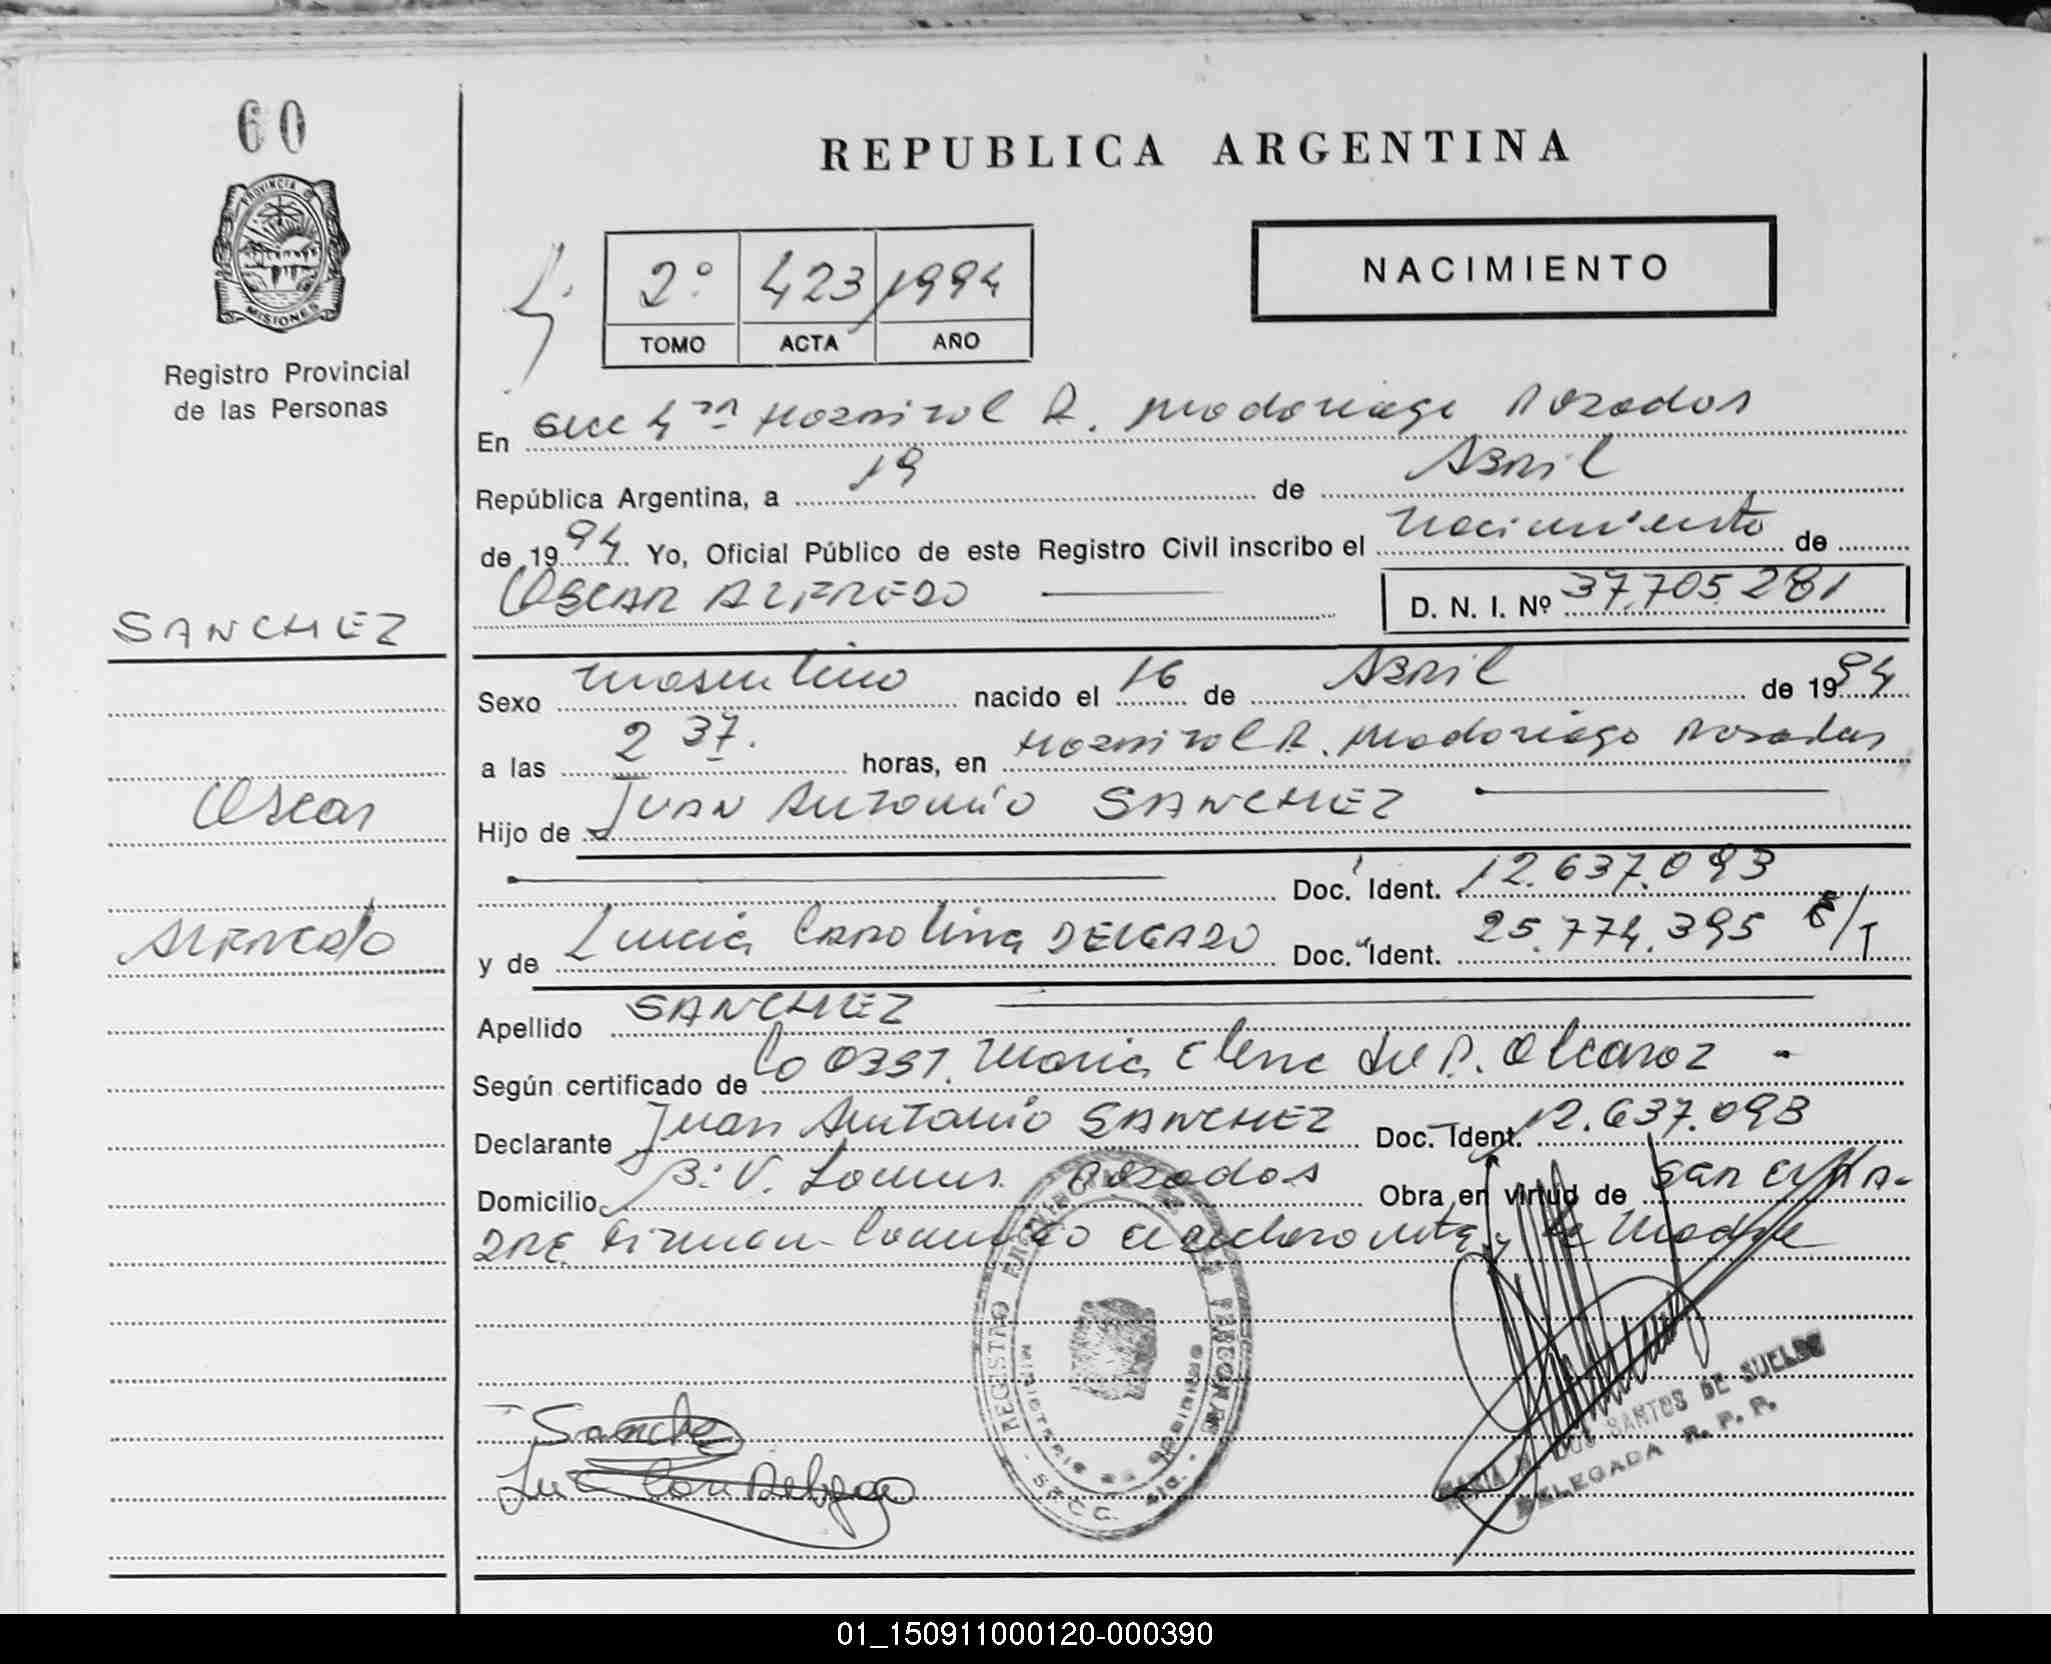 60
PROVINCIA DE
MISIONES
Registro Provincial
de las Personas
REPUBLICA ARGENTINA
2º 423 1994
TOMO ACTA AÑO
NACIMIENTO
En Hospital R. Madariaga Posadas
República Argentina, a 19 de Abril
de 1994 Yo, Oficial Público de este Registro Civil inscribo el nacimiento de
OSCAR ALFREDO D. N. I. Nº 37.705.281
SANCHEZ
Oscar
Alfredo
Sexo masculino nacido el 16 de Abril de 1994
a las 2 37. horas, en Hospital R. Madariaga Posadas
Hijo de JUAN Antonio SANCHEZ
Doc. Ident. 12.637.093
y de Lucia Carolina DELGADO Doc. Ident. 25.774.395 E/T
Apellido SANCHEZ
Según certificado de Maria Elena Alcaraz
Declarante Juan Antonio SANCHEZ Doc. Ident. 12.637.093
Domicilio Bº V. Posadas Obra en virtud de
DRE Firman la madre
REGISTRO PROVINCIAL DE LAS PERSONAS
Sanchez
DOS SANTOS DE SUELDO
DELEGADA R. P. P.
01_150911000120-000390